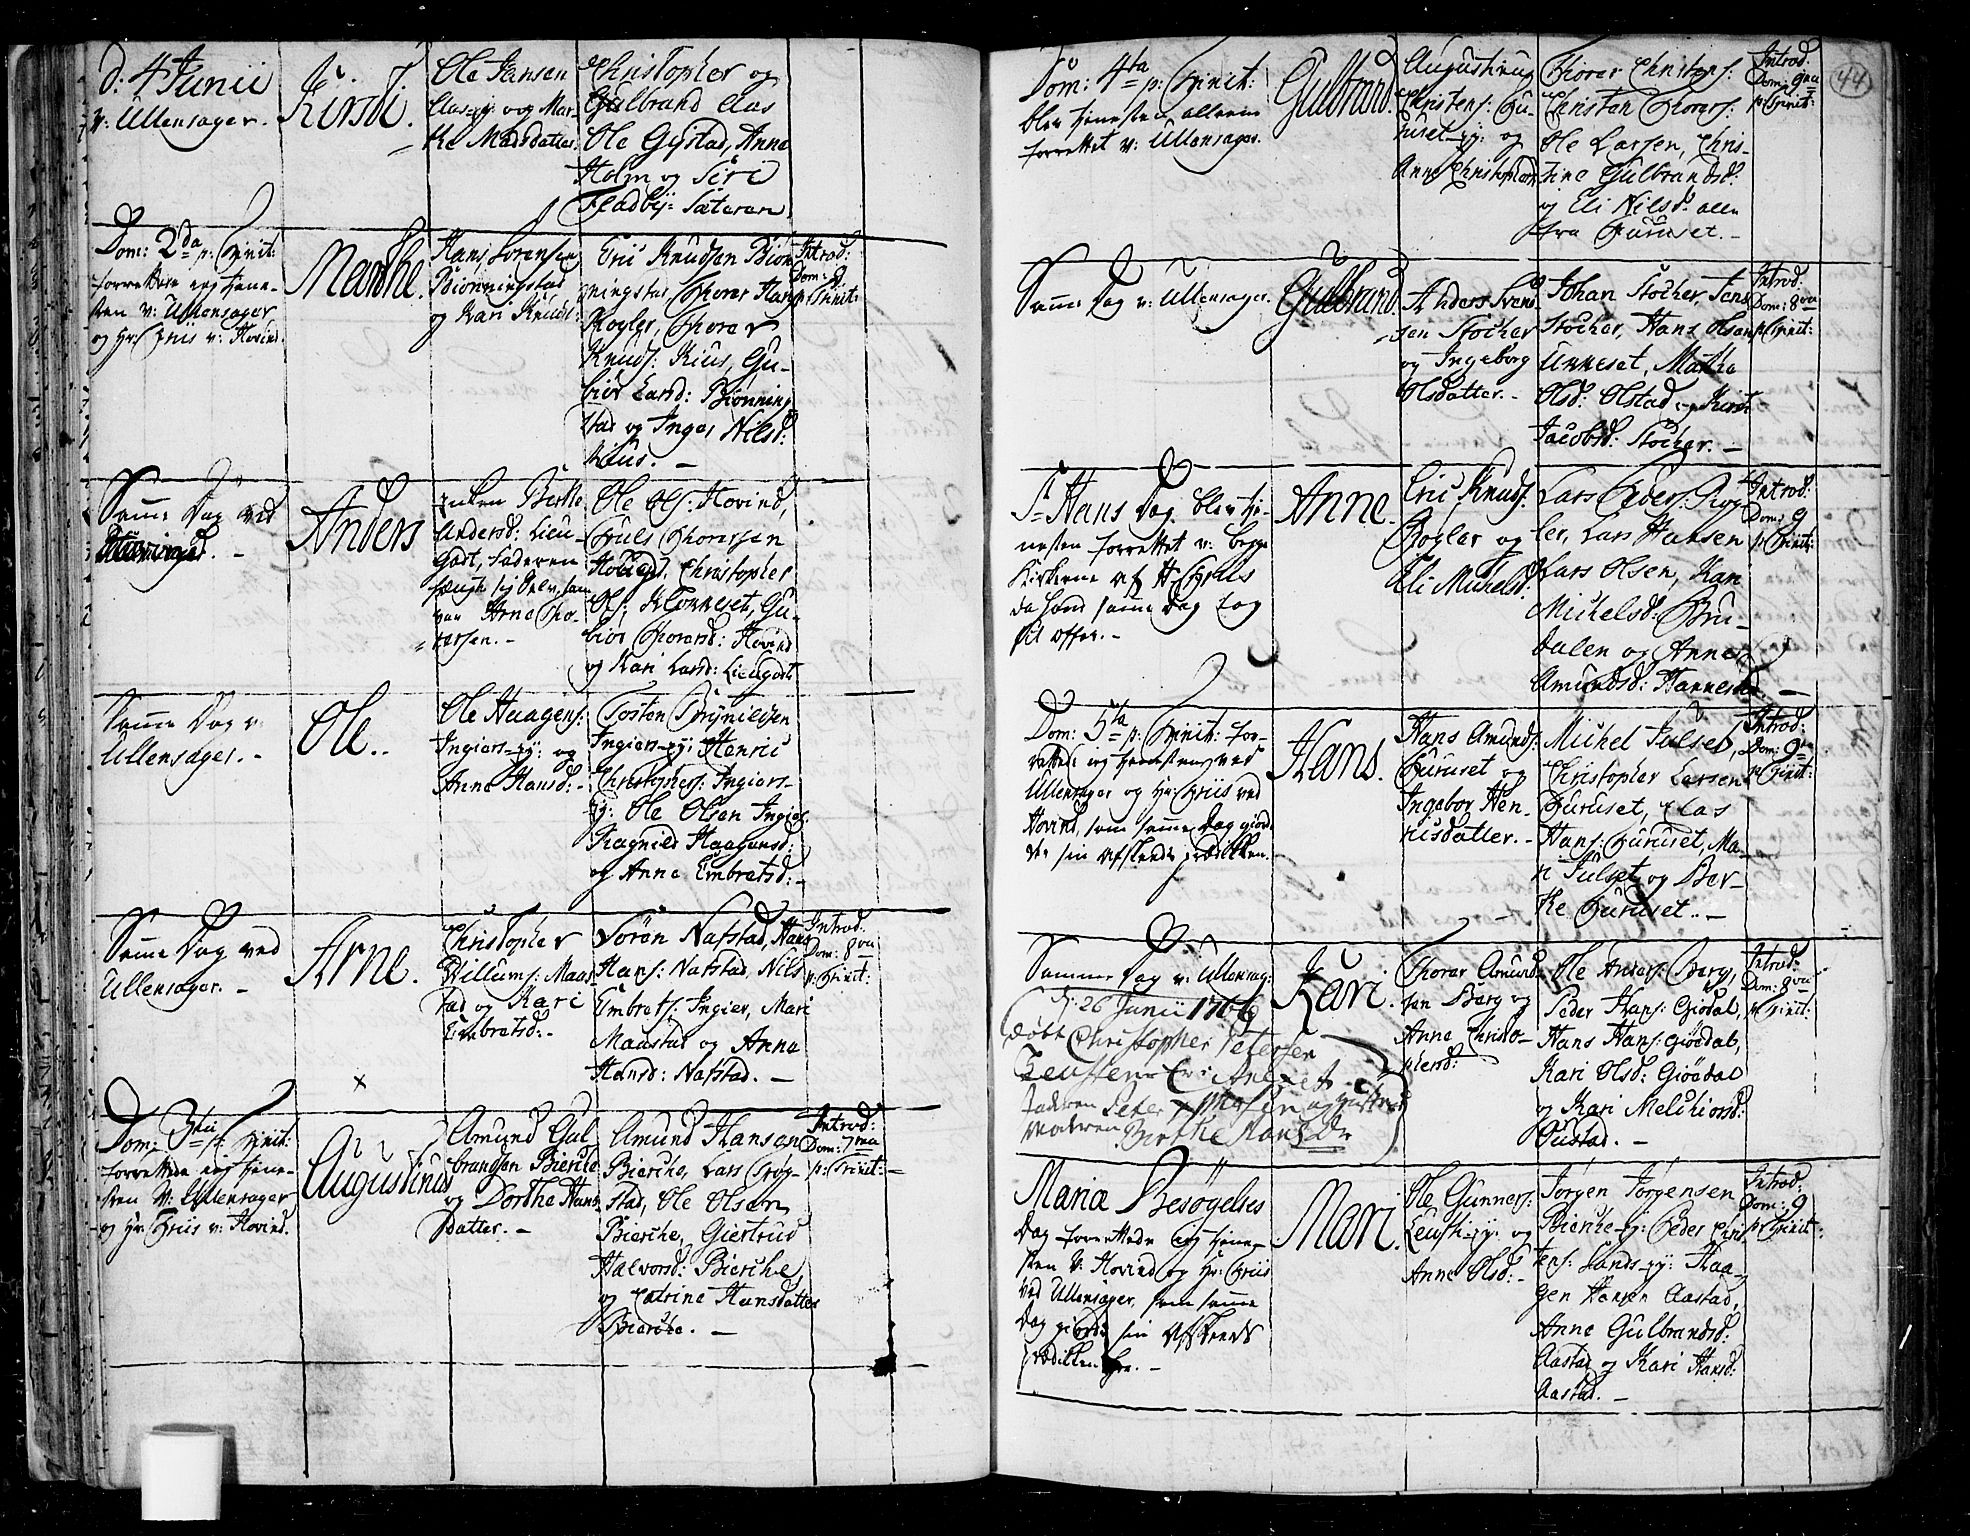 d: 4 Junii
v: Ullensager.
Kirsti
Ole Hansen
Aas-ej: og Mar-
the Madsdatter.
Christopher og
Gulbrand Aas
Ole Gystad, Anne
Holm og Siri
Fladbÿ-Sæteren
Dom: 2da p: Trinit:
forrettede ieg tiene-
sten v: Ullensager
og Hr: Friis v: Hovind.
Marthe.
Hans Sørensen
Biønningstad
og Kari Knuds:
Eric Knudsen Biøn-
ningstad, Thorer Hans:
Rogler, Thorer
Knuds: Kius, Gu-
biør Larsd: Biønning
stad og Inger Nilsd:
Kius. -
Introd:
Dom: 9
p: Trinit:
Samme Dag ved
Anders
Enken Birthe
Andersd: Lieu-
godt, Faderen
var Arne Tho-
resen. -
Ole Ols: Hovind,
Truls Thoresen
Hovind, Christopher
Ols: Klonneset, Gu-
biør Thoresd: Hovind
og Kari Larsd: Lieugodt
Samme Dag v:
Ullensager. -
Ole.
Ole Haagens:
Ingiers-ej: og
Anne Hansd: -
Tosten Brÿnildsen
Ingiers-ej: Henric
Christophers: Ingiers-
ej: Ole Olsen Ingier
Ragnild Haagensd:
og Anne Embretsd: -
Samme Dag ved
Ullensager. -
Arne.
Christopher
Willums: Maa-
stad og Kari
Embretsd: -
Søren Nafstad, Hans
Hans: Nafstad, Nils
Embrets: Ingier, Mari
Maastad og Anne
Hansd: Nafstad. -
Introd:
Dom: 8va
p: Trinit:
Dom: 3tia p: Trinit:
forrettede ieg tiene-
sten v: Ullensager
og Hr: Friis v: Hovind.
Augustinus
Amund Gul-
brandsen Bierche
og Dorthe Hans
datter. -
Amund Hansen
Bierche, Lars Trøg-
stad, Ole Olsen
Bierche, Giertrud
Halvorsd: Bierche,
og Catrine Hansdatter
Bierche. -
Introd:
Dom: 7ma
p: Trinit: -
44
Dom: 4ta p: Trinit:
blev tienesten allene
forrettet v: Ullensager.
Gulbrand.
Augustinus
Christens: Fu-
ruset-ej: og
Anne Christophersd:
Thorer Christens:
Christen Thorers:
Ole Larsen, Chris-
tine Gulbrandsd:
og Eli Nilsd: alle
fra Furuset. -
Introd:
Dom: 9na
p: Trinit:
Samme Dag v: Ullensager.
Gulbrand.
Anders Svend-
sen Stocher
og Ingeborg
Olsdatter. -
Johan Stocher, Jens
Stocher, Hans Olsen
Unneset, Marthe
Olsd: Olstad og Kirsti
Jacobsd: Stocher. -
Introd:
Dom: 8va
p: Trinit:
St Hans Dag blev tie-
nesten forrettet v: begge
Kirkerne af Hr Friis
da hand samme Dag tog
sit offer. -
Anne.
Eric Knuds:
Rogler og
Eli Michelsd:
Lars Peders: Rog-
ler, Lars Hansen
Lars Olsen, Kari
Michelsd: Bru-
dalen og Anne
Amundsd: Hanneset. -
Introd:
Dom: 9
p: Trinit:
Dom: 5ta p: Trinit: for-
rettede ieg tienesten ved
Ullensager og Hr: Friis ved
Hovind, som samme Dag giord-
de sin Afskeeds prædikken.
Hans.
Hans Amunds:
Furuset og
Ingebor Hen-
ricsdatter. -
Michel Julset,
Christopher Larsen
Furuset, Clas
Hans: Furuset, Ma-
ri Julset og Ber-
the Furuset. -
Introd:
Dom: 9na
p: Trinit:
Samme Dag v: Ullensag:
Kari.
Thorer Amund-
sen Berg og
Anne Christo-
phersd:
Ole Anders: Berg,
Peder Hans: Giødal,
Hans Hans: Giødal,
Kari Olsd: Giødal
og Kari Melchiorsd:
Gustad. -
Introd:
Dom: 8va
p: Trinit:
d: 26 Junii 1766
døbt Christopher Petersen
faderen Peter
Moderen Birthe Hans Dr
Maria Besøgelses
Dag forrettede ieg tiene-
sten v: Hovind og Hr: Friis
ved Ullensager, som samme
Dag giorde sin Afskeeds
prædikken her. -
Mari.
Ole Gunners:
og
Anne Olsd: -
Jørgen Jørgensen
Bierche-ej: Peder Chris-
tens: Sands-ej: Haa-
gen Hansen Aastad,
Anne Gulbrandsd:
Aastad og Kari Hansd:
Aastad. -
Introd:
Dom: 9
p: Trinit: